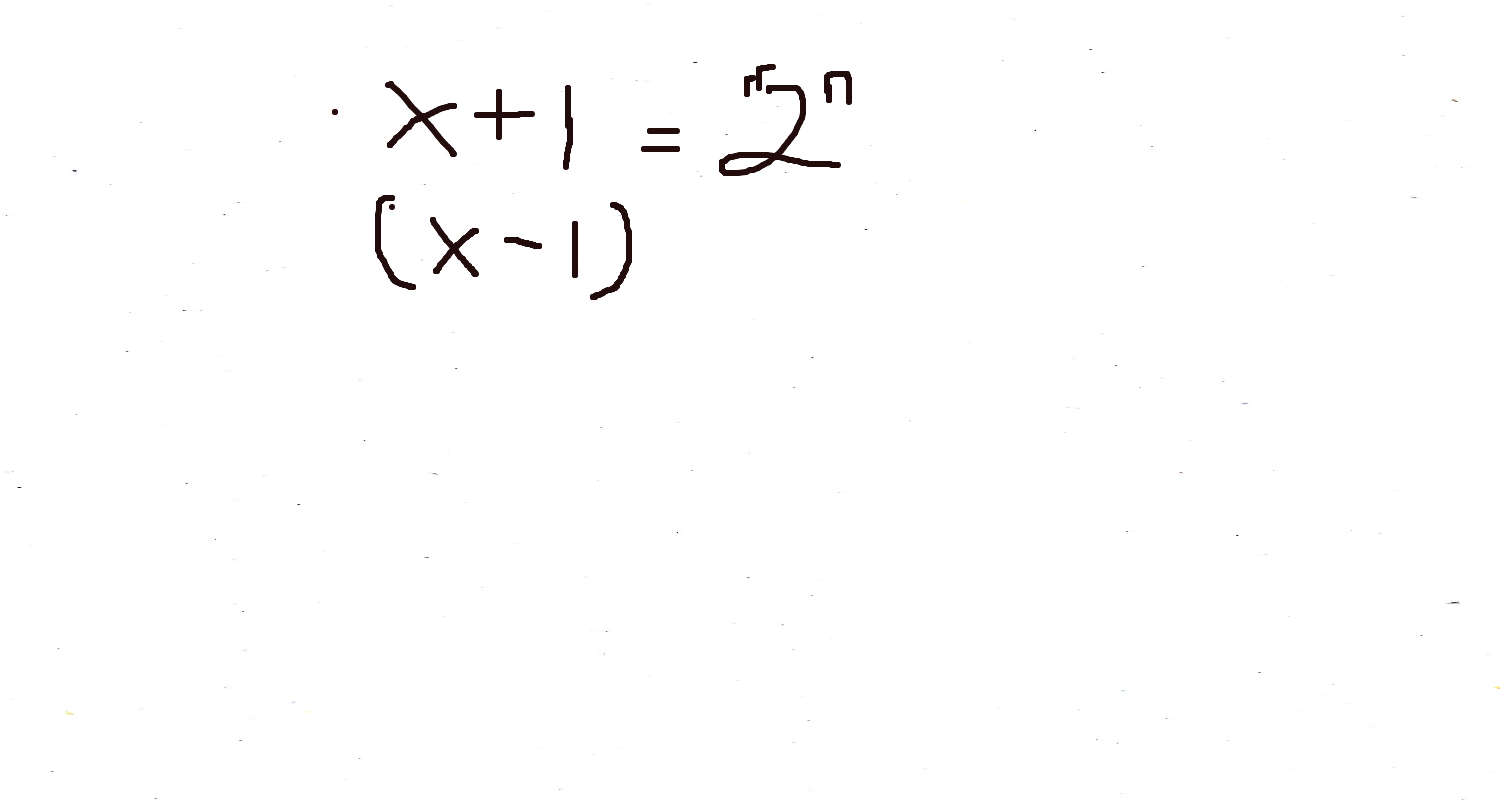 x + 1 = 2ⁿ
(x - 1)